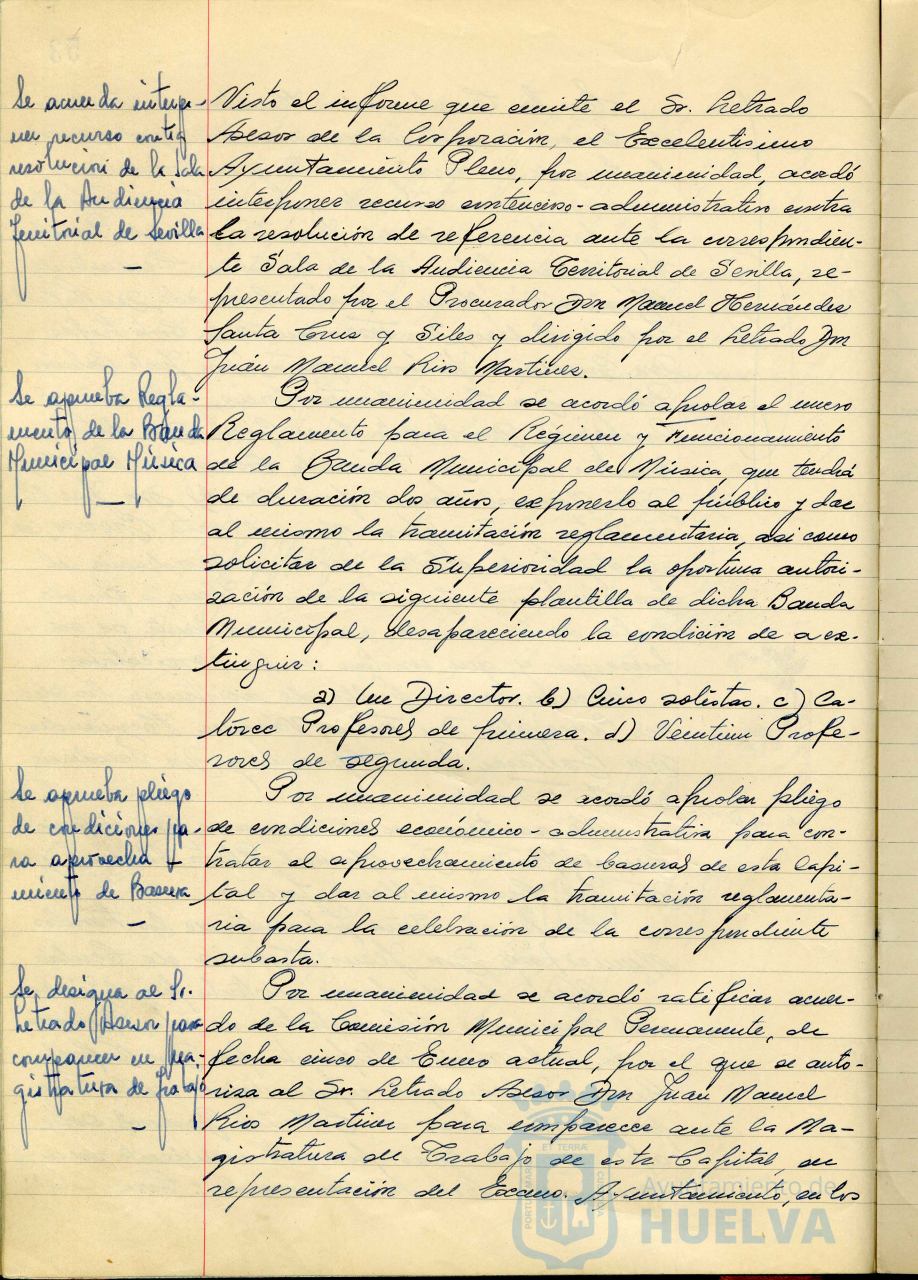 Se acuerda interpo-
ner recurso contra
resolución de la Sala
de la Audiencia
Territorial de Sevilla
—
Visto el informe que emite el Sr. Letrado
Asesor de la Corporación, el Excelentísimo
Ayuntamiento Pleno, por unanimidad, acordó
interponer recurso contencioso-administrativo contra
la resolución de referencia ante la correspondien-
te Sala de la Audiencia Territorial de Sevilla, re-
presentado por el Procurador Don Manuel Hernández
Santa Cruz y Siles y dirigido por el Letrado Don
Juán Manuel Rios Martínez.
Se aprueba Regla-
mento de la Banda
Municipal Música
—
Por unanimidad se acordó aprobar el nuevo
Reglamento para el Régimen y Funcionamiento
de la Banda Municipal de Música, que tendrá
de duración dos años, exponerlo al público y dar
al mismo la tramitación reglamentaria, asi como
solicitar de la Superioridad la oportuna autori-
zación de la siguiente plantilla de dicha Banda
Municipal, desapareciendo la condición de a ex-
tinguir:
a) Un Director. b) Cinco solistas. c) Ca-
torce Profesores de primera. d) Veintiun Profe-
sores de segunda.
Se aprueba pliego
de condiciones pa-
ra aprovecha-
miento de Basura
—
Por unanimidad se acordó aprobar pliego
de condiciones económico-administrativa para con-
tratar el aprovechamiento de basuras de esta Capi-
tal y dar al mismo la tramitación reglamenta-
ria para la celebración de la correspondiente
subasta.
Se designa al Sr.
Letrado Asesor para
comparecer en Ma-
gistratura de Trabajo
—
Por unanimidad se acordó ratificar acuer-
do de la Comisión Municipal Permanente, de
fecha cinco de Enero actual, por el que se auto-
riza al Sr. Letrado Asesor Don Juán Manuel
Rios Martinez para comparecer ante la Ma-
gistratura de Trabajo de esta Capital, en
representación del Excmo. Ayuntamiento, en los
Ayuntamiento de
HUELVA